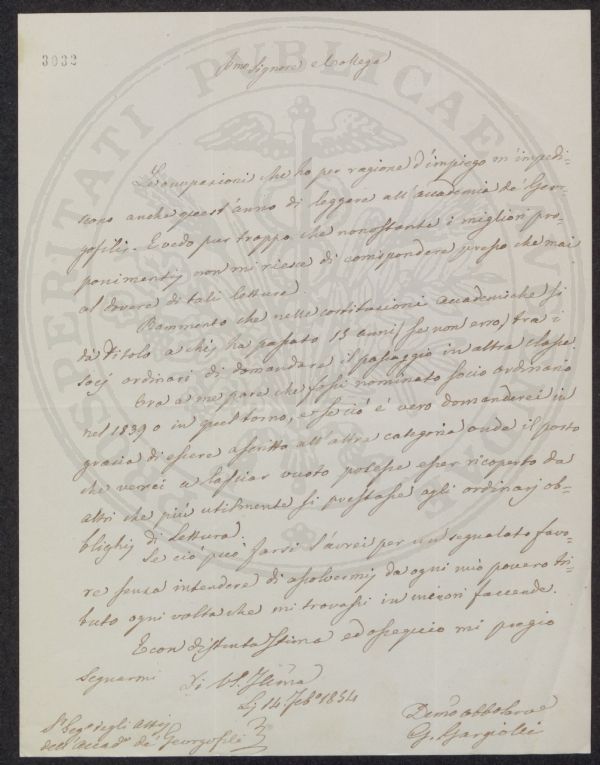 3032
PROSPERITATI PUBLICAE AUGENDAE
Ilmo Signore e Collega
Le occupazioni che ho per ragione d'impiego m'impedi=
scono anche quest'anno di leggere all'accademia de Geor=
gofili. E vedo pur troppo che nonostante i migliori pro=
ponimenti non mi riesce di corrispondere presso che mai
al dovere di tali letture.
Rammento che nelle costituzioni accademiche si
dà titolo a chi ha passato 15 anni (se non erro) tra i
socj ordinari di domandare il passaggio in altra classe
Ora a me pare che fossi nominato socio ordinario
nel 1839 o in quel torno, e se ciò è vero domanderei in
grazia di essere ascritto all'altra categoria onde il posto
che verrei a lasciar vuoto potesse esser ricoperto da
altri che più utilmente si prestasse agli ordinarj ob=
blighi di lettura.
Se ciò può farsi l'avrei per un segnalato favo=
re senza intendere di assolvermi da ogni mio povero tri=
buto ogni volta che mi trovassi in minori faccende.
E con distinta stima ed ossequio mi pregio
Segnarmi
Di VS. Illma
Li 14 Febo 1854
Sr Sego degli Atti
dell'Accada de' Georgofili
Devmo Obbo
G.